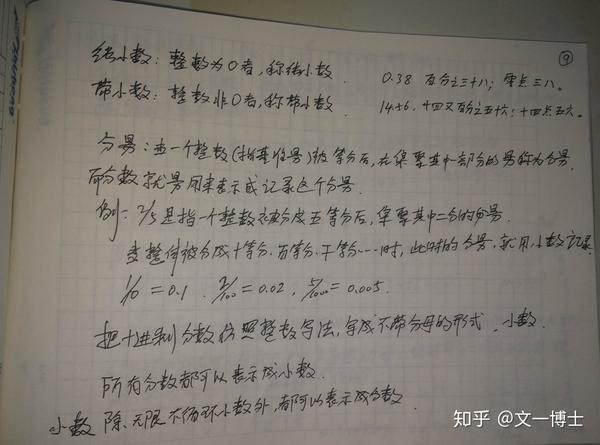 ⑨
纯小数：整数为0者，称纯小数. 0.38 百分之三十八；零点三八。
带小数：整数非0者，称带小数. 14.56. 十四又百分之五十六；十四点五六。
分量：当一个整数(指基准量)被等分后，在集聚其中一部分的量称为分量.
而分数就是用来表示或记录这个分量.
例：2/5是指一个整数被分成五等分后，集聚其中二分的分量.
当整体被分成十等分、百等分、千等分……时，此时的分量，就用小数记录.
1/10 = 0.1 . 2/100 = 0.02 . 5/1000 = 0.005.
把十进制分数仿照整数写法，写成不带分母的形式. 小数.
所有分数都可以表示成小数.
小数 除、无限不循环小数外，都可以表示成分数.
知乎 @文一博士